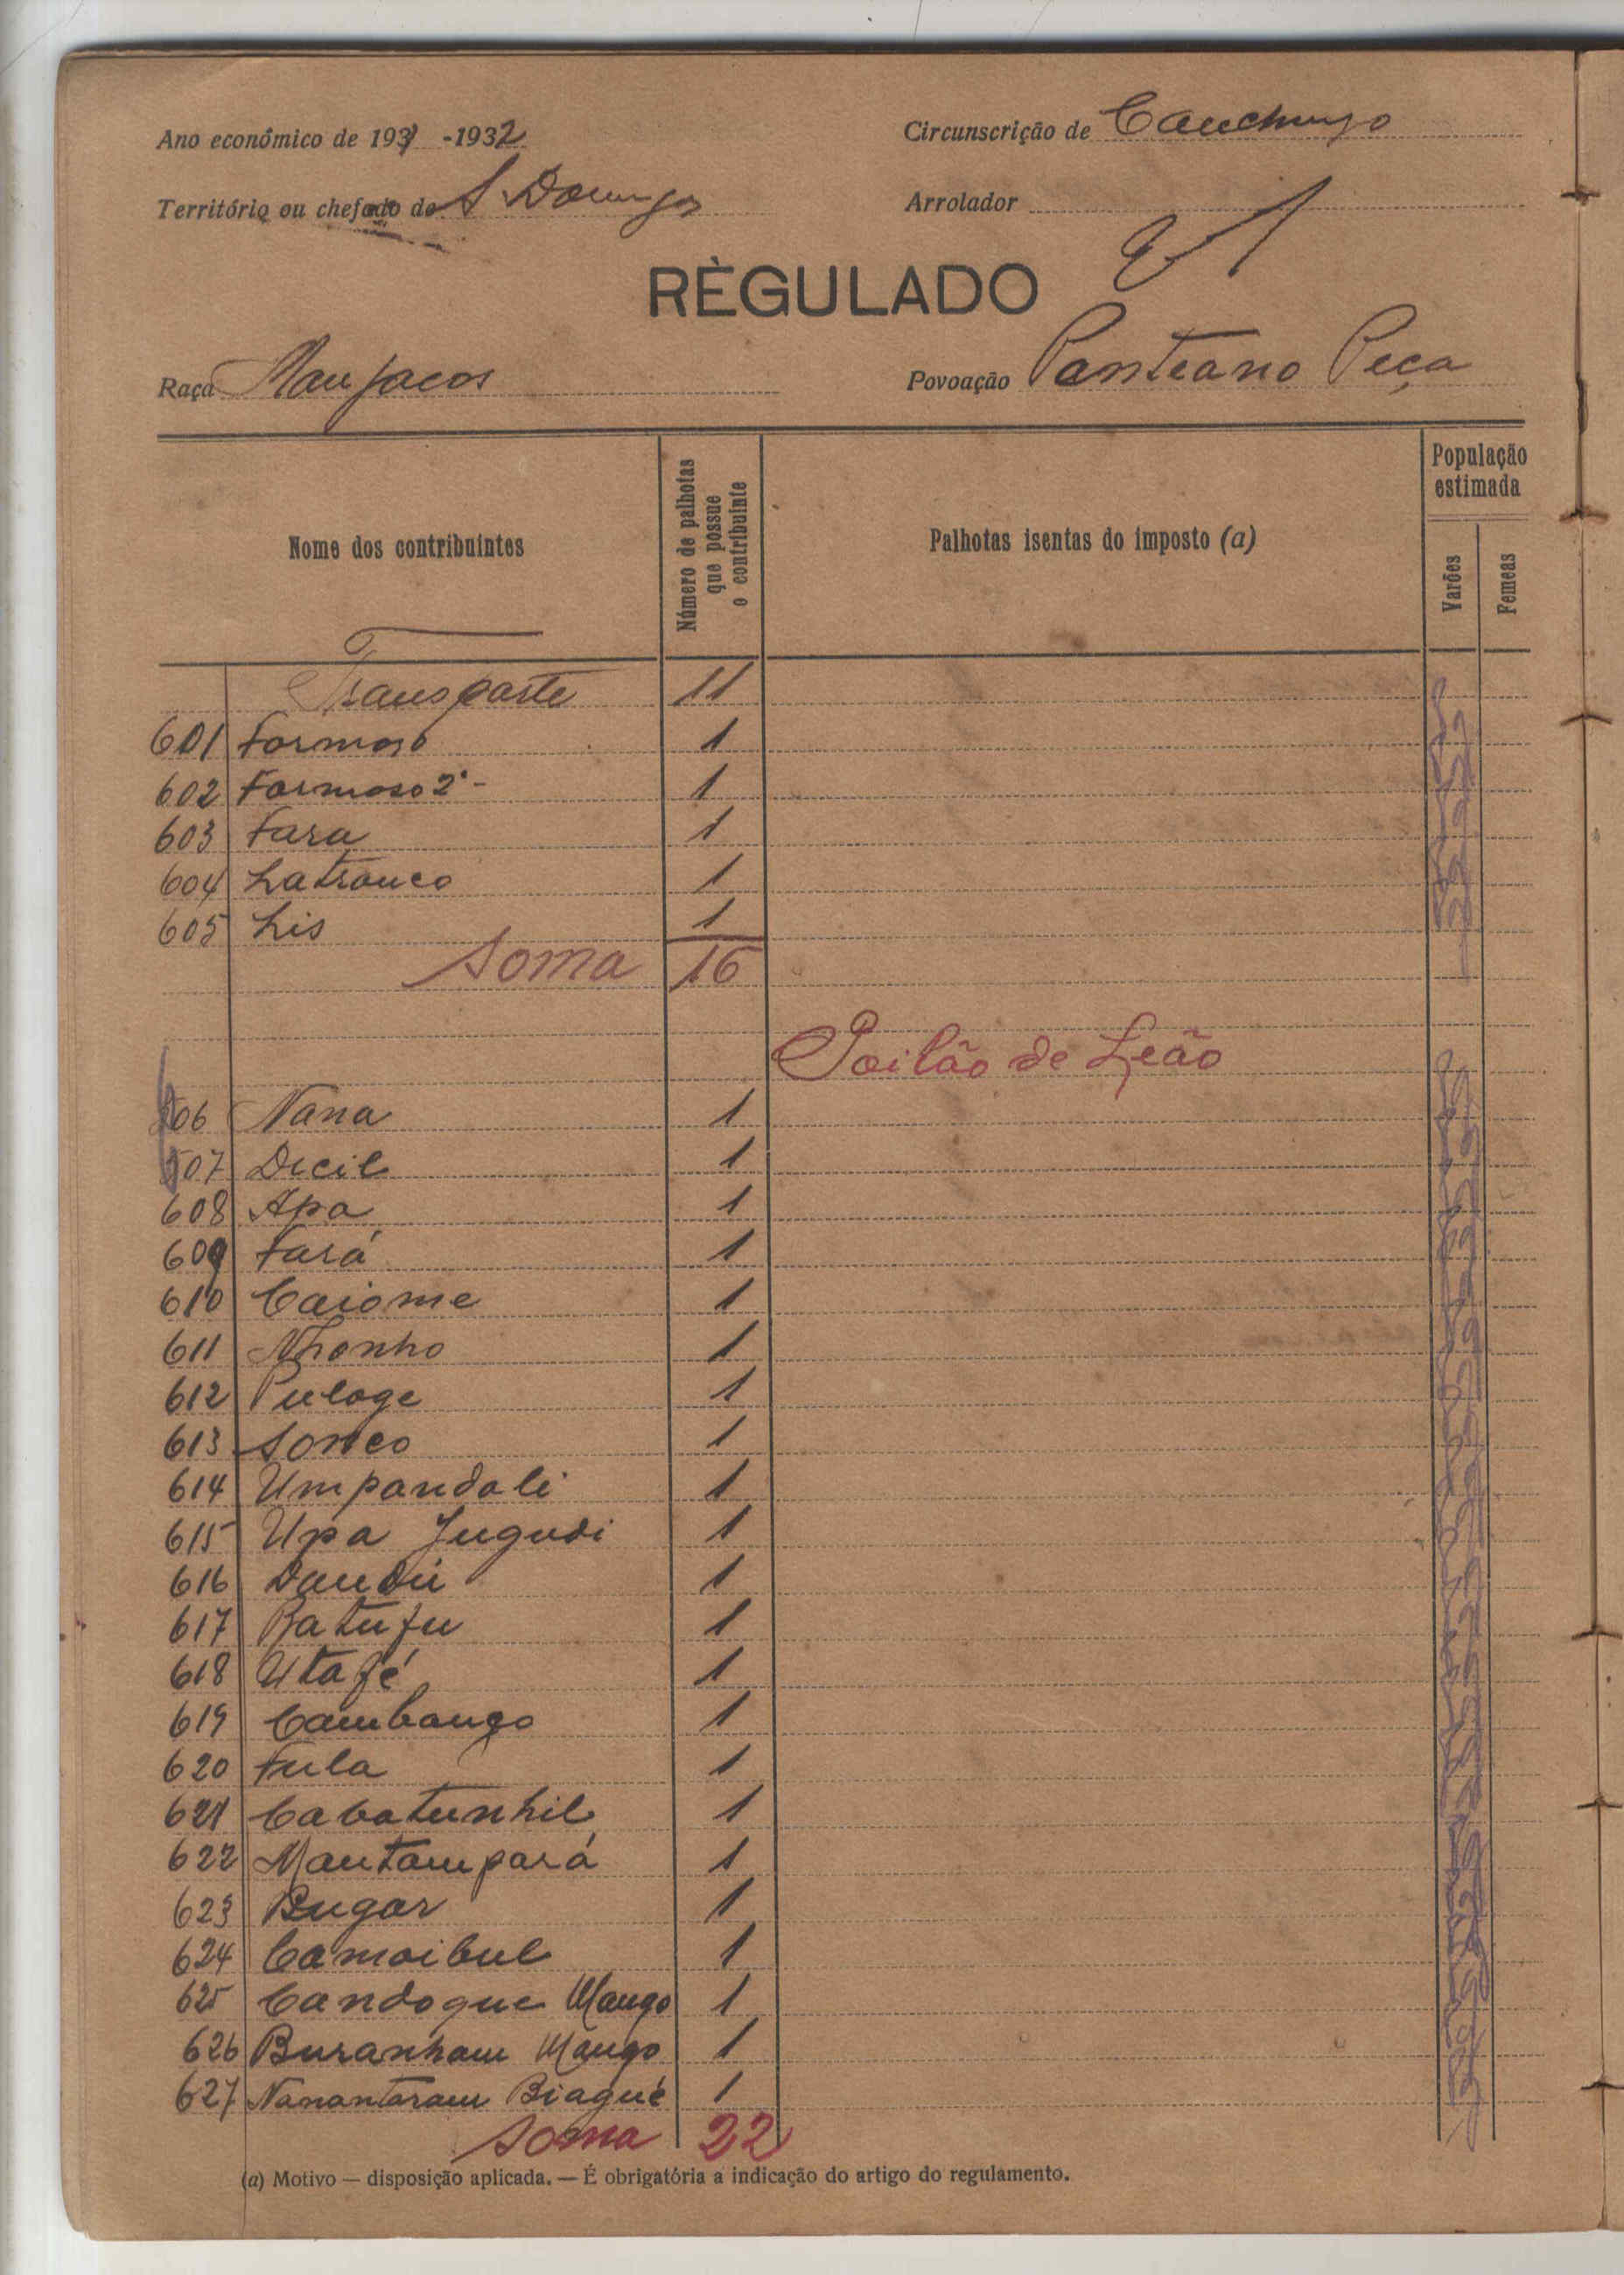 Ano económico de 1931 -1932
Circunscrição de Canchungo
Território ou chefado de S Domingos
Arrolador
RÈGULADO
Raça Manjacos
Povoação Panteano Peça
Nome dos contribuintes
Número de palhotas que possue o contribuinte
Palhotas isentas do imposto (a)
População estimada
Varões
Femeas
Transporte 11
601 Formoso 1
602 Formoso 2º - 1
603 Fara 1
604 Latranco 1
605 Lis 1
Soma 16
Poilão de Leão
606 Nana 1
607 Decil 1
608 Apa 1
609 Fará 1
610 Caiome 1
611 Nhonho 1
612 Puloge 1
613 Sonco 1
614 Umpandali 1
615 Upa Jugudi 1
616 Dandú 1
617 Batufu 1
618 Utafé 1
619 Cambango 1
620 Fula 1
621 Cabatunhil 1
622 Mantampará 1
623 Bugar 1
624 Camoibul 1
625 Candoque Mango 1
626 Buranham Mango 1
627 Nanantaram Biagué 1
Soma 22
(a) Motivo — disposição aplicada. — É obrigatória a indicação do artigo do regulamento.